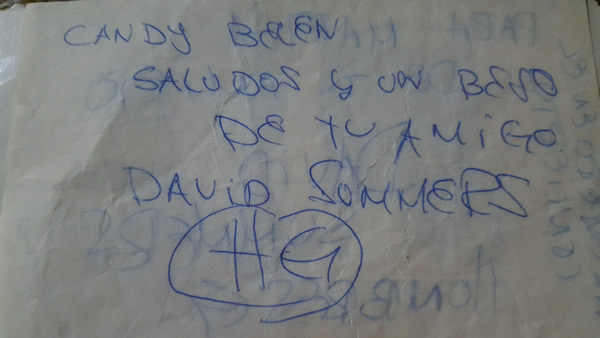 CANDY BELEN
SALUDOS y UN BESO
DE TU AMIGO
DAVID SUMMERS
HG